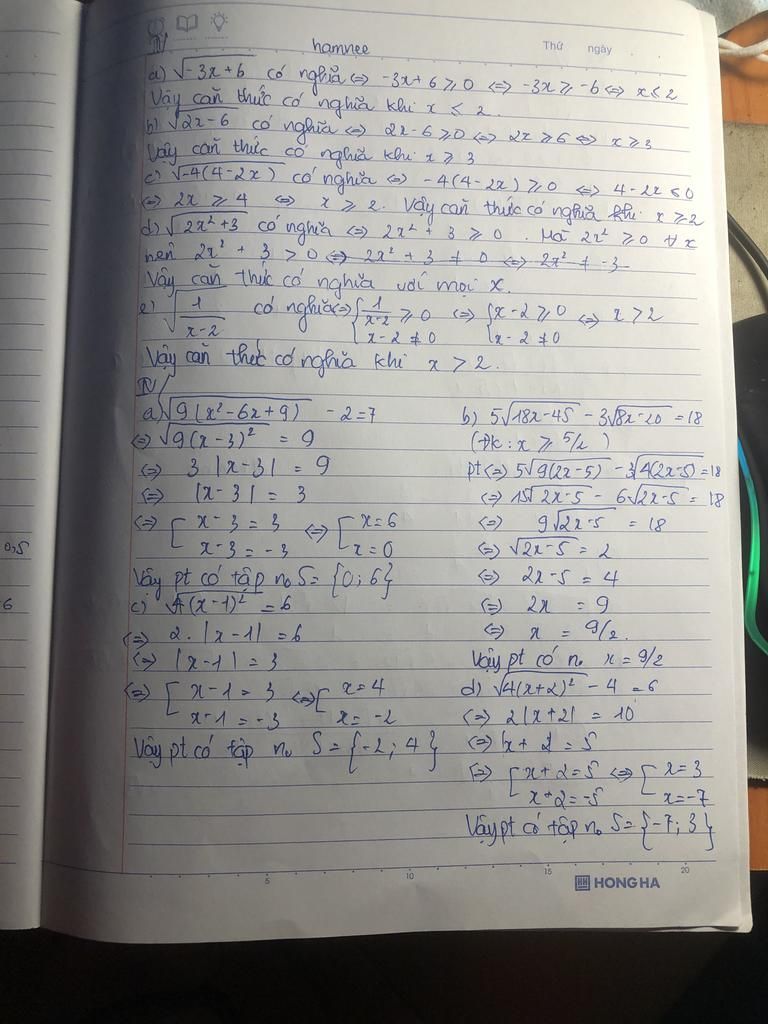 hamnee
Thứ ngày
a) √-3x+6 có nghĩa ⇔ -3x+6 ≥ 0 ⇔ -3x ≥ -6 ⇔ x ≤ 2
Vậy căn thức có nghĩa khi x ≤ 2.
b) √2x-6 có nghĩa ⇔ 2x-6 ≥ 0 ⇔ 2x ≥ 6 ⇔ x ≥ 3
Vậy căn thức có nghĩa khi x ≥ 3
c) √-4(4-2x) có nghĩa ⇔ -4(4-2x) ≥ 0 ⇔ 4-2x ≤ 0
⇔ 2x ≥ 4 ⇔ x ≥ 2. Vậy căn thức có nghĩa khi x ≥ 2
d) √2x²+3 có nghĩa ⇔ 2x² + 3 ≥ 0. Mà 2x² ≥ 0 ∀x
nên 2x² + 3 > 0 ⇔ 2x² + 3 ≠ 0 ⇔ 2x² ≠ -3
Vậy căn thức có nghĩa với mọi x.
e) √1/(x-2) có nghĩa ⇔ { 1/(x-2) ≥ 0 ⇔ { x-2 ≥ 0 ⇔ x > 2
x-2 ≠ 0 x-2 ≠ 0
Vậy căn thức có nghĩa khi x > 2.
IV
a) √9(x²-6x+9) - 2 = 7
⇔ √9(x-3)² = 9
⇔ 3 |x-3| = 9
⇔ |x-3| = 3
⇔ [ x-3 = 3 ⇔ [ x=6
x-3 = -3 x=0
Vậy pt có tập no S = {0; 6}
b) 5√18x-45 - 3√8x-20 = 18
(Đk: x ≥ 5/2)
pt ⇔ 5√9(2x-5) - 3√4(2x-5) = 18
⇔ 15√2x-5 - 6√2x-5 = 18
⇔ 9√2x-5 = 18
⇔ √2x-5 = 2
⇔ 2x-5 = 4
⇔ 2x = 9
⇔ x = 9/2.
Vậy pt có no x = 9/2
c) √4(x-1)² = 6
⇔ 2.|x-1| = 6
⇔ |x-1| = 3
⇔ [ x-1 = 3 ⇔ [ x=4
x-1 = -3 x= -2
Vậy pt có tập no S = {-2; 4}
d) √4(x+2)² - 4 = 6
⇔ 2|x+2| = 10
⇔ |x+2 = 5
⇔ [ x+2=5 ⇔ [ x=3
x+2=-5 x=-7
Vậy pt có tập no S = {-7; 3}
0,5
6
5 10 15 20
HONG HA